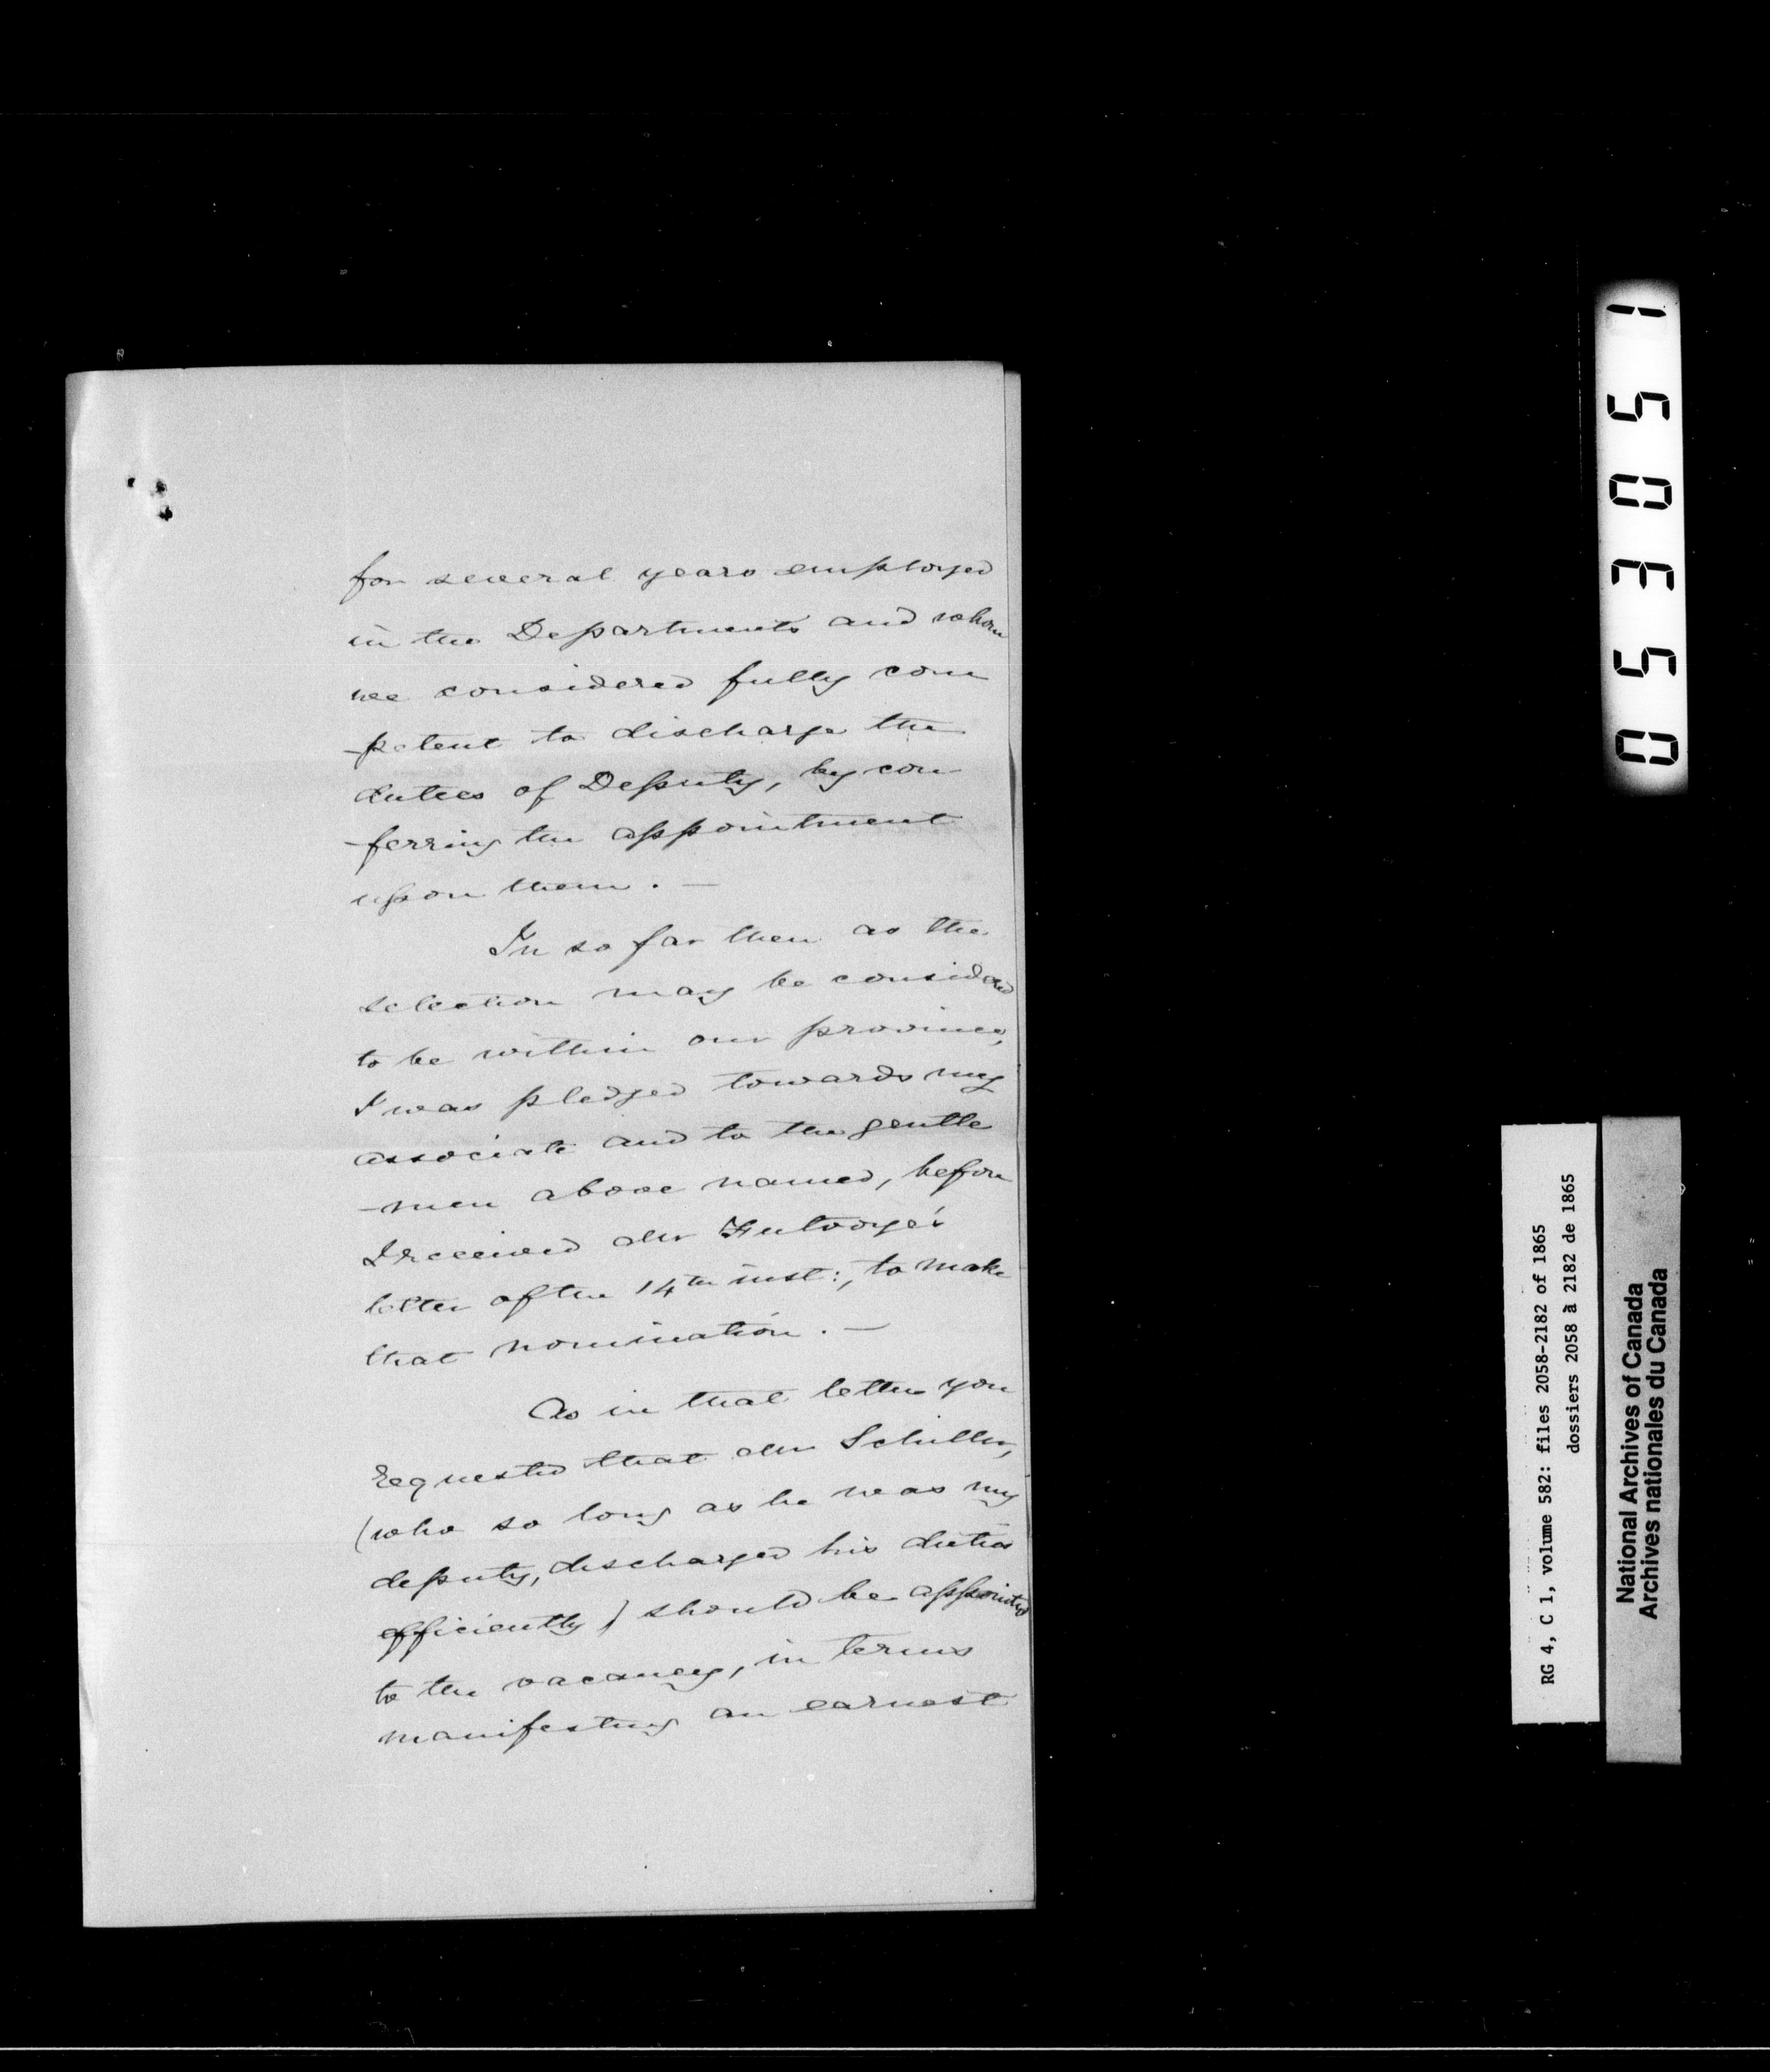 for several years employed
in the Departments and whom
we considered fully com
-petent to discharge the
duties of Deputy, by con
-ferring the appointment
upon them. —
In so far then as the
selection may be considered
to be within our province,
I was pledged towards my
associate and to the gentle
-men above named, before
I received Mr Futvoye's
letter of the 14th inst:, to make
that nomination. —
As in that letter you
requested that Mr Schiller,
(who so long as he was my
deputy, discharged his duties
efficiently) should be appointed
to the vacancy, in terms
manifesting an earnest
050351
RG 4, C 1, volume 582: files 2058-2182 of 1865
dossiers 2058 à 2182 de 1865
National Archives of Canada
Archives nationales du Canada